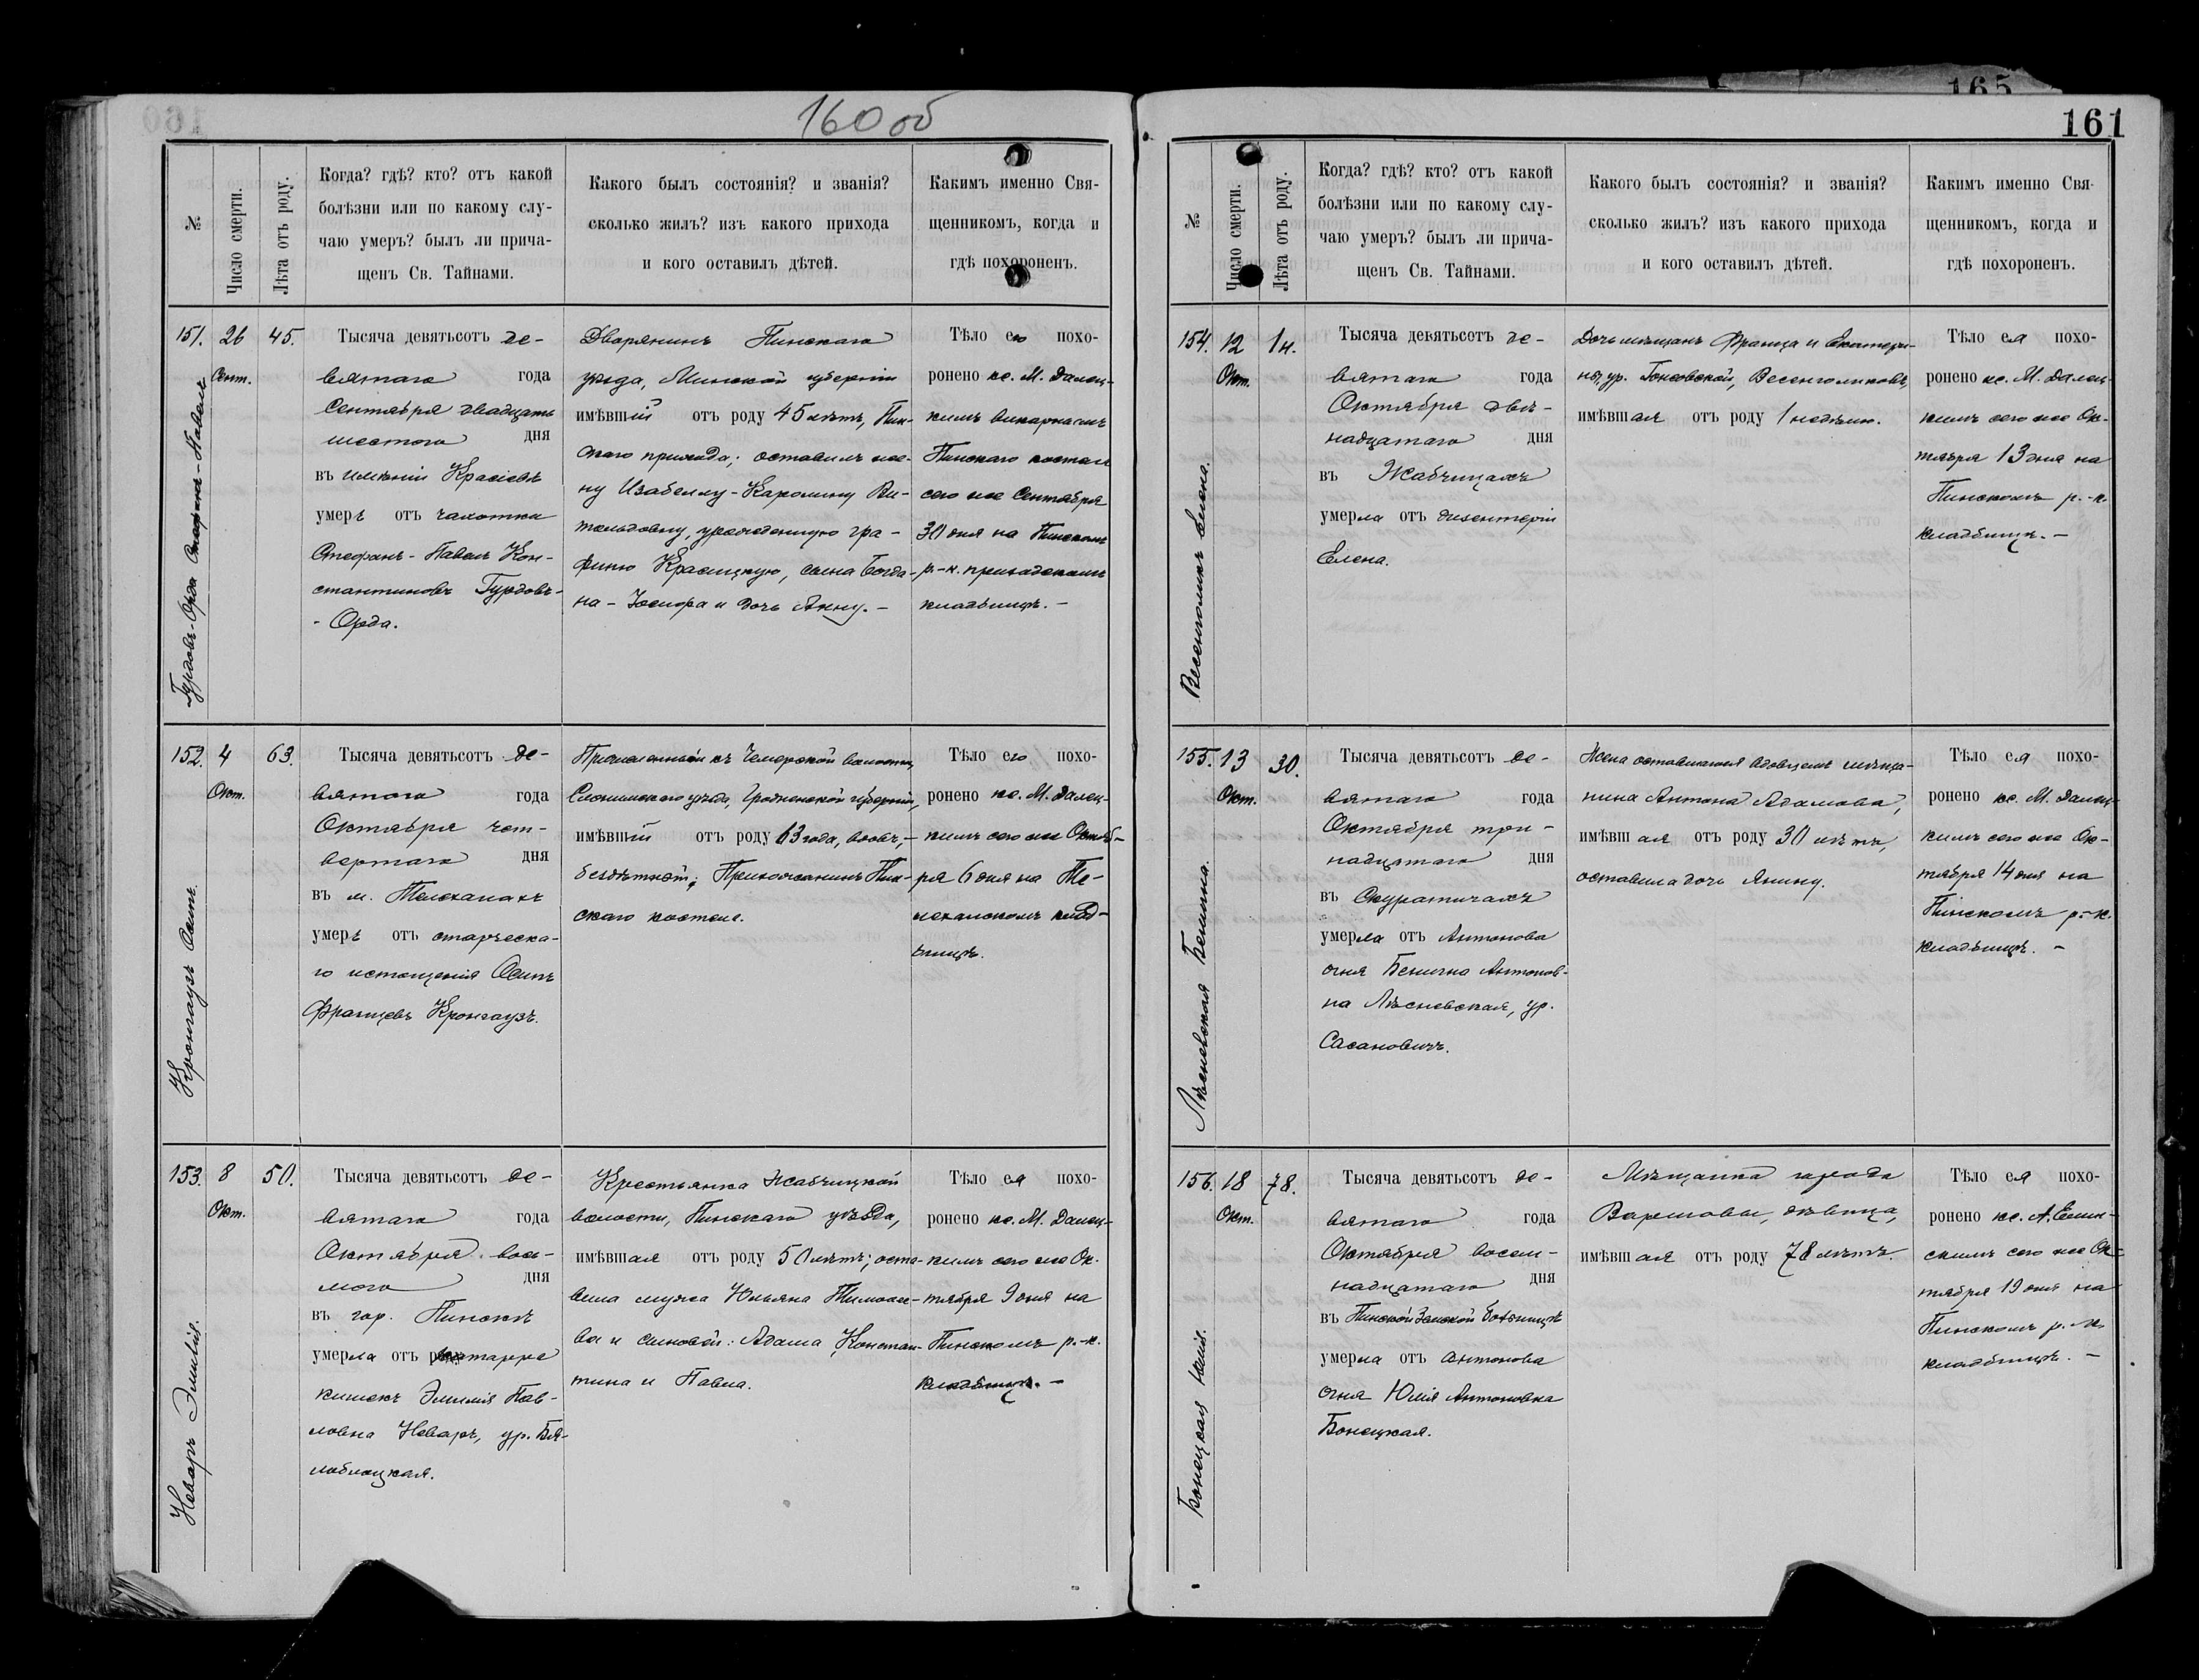 160 об
№
Число смерти.
Лѣта отъ роду.
Когда? гдѣ? кто? отъ какой
болѣзни или по какому слу-
чаю умеръ? былъ ли прича-
щенъ Св. Тайнами.
Какого былъ состоянія? и званія?
сколько жилъ? изъ какого прихода
и кого оставилъ дѣтей.
Какимъ именно Свя-
щенникомъ, когда и
гдѣ похороненъ.
Гурдовъ-Орда Стефанъ-Павелъ
151.
26
Сент.
45.
Тысяча девятьсотъ де-
вятаго года
Сентября двадцать
шестого дня
въ имѣніи Красіевѣ
умеръ отъ чахотки
Стефанъ-Павелъ Кон-
стантиновъ Гурдовъ-
-Орда.
Дворянинъ Пинскаго
уѣзда, Минской губерніи
имѣвшій отъ роду 45 лѣтъ, Пин-
скаго прихода; оставилъ же-
ну Изабеллу-Каролину Ви-
тольдовну, урожденную гра-
финю Красицкую, сына Богда-
на-Іосифа и дочь Анну.-
Тѣло его похо-
ронено кс. М. Далец-
кимъ викарнымъ
Пинскаго костела
сего же Сентября
30 дня на Пинскомъ
р.-к. приходскомъ
кладбищѣ.-
Кронгаузъ Осипъ.
152.
4
Окт.
63.
Тысяча девятьсотъ де-
вятаго года
Октября чет-
вертаго дня
въ м. Телеханахъ
умеръ отъ старческа-
го истощенія Осипъ
Францевъ Кронгаузъ.
Причисленный къ Чемерской волости,
Слонимскаго уѣзда, Гродненской губерніи,
имѣвшій отъ роду 63 года, вдовъ,-
бездѣтный; Прихожанинъ Пин-
скаго костела.
Тѣло его похо-
ронено кс. М. Далец-
кимъ сего же Октяб-
ря 6 дня на Те-
леханскомъ клад-
бищѣ.
Неваръ Эмилія.
153.
8
Окт.
50.
Тысяча девятьсотъ де-
вятаго года
Октября вось-
мого дня
въ гор. Пинскѣ
умерла отъ катарра
кишекъ Эмилія Пав-
ловна Неваръ, ур. Бя-
лоблоцкая.
Крестьянка Жабчицкой
волости, Пинскаго уѣзда,
имѣвшая отъ роду 50 лѣтъ; оста-
вила мужа Юльяна Тимофее-
ва и сыновей: Адама, Констан-
тина и Павла.
Тѣло ея похо-
ронено кс. М. Далец-
кимъ сего же Ок-
тября 9 дня на
Пинскомъ р.-к.
кладбищѣ.-
165
161
№
Число смерти.
Лѣта отъ роду.
Когда? гдѣ? кто? отъ какой
болѣзни или по какому слу-
чаю умеръ? былъ ли прича-
щенъ Св. Тайнами.
Какого былъ состоянія? и званія?
сколько жилъ? изъ какого прихода
и кого оставилъ дѣтей.
Какимъ именно Свя-
щенникомъ, когда и
гдѣ похороненъ.
Весенгольмъ Елена.
154.
12
Окт.
1 н.
Тысяча девятьсотъ де-
вятаго года
Октября двѣ-
надцатаго дня
въ Жабчицахъ
умерла отъ дизентеріи
Елена.
Дочь мѣщанъ Франца и Екатери-
ны, ур. Весенгольмовъ,
имѣвшая отъ роду 1 недѣлю.
Тѣло ея похо-
ронено кс. М. Далец-
кимъ сего же Ок-
тября 13 дня на
Пинскомъ р.-к.
кладбищѣ.-
Лѣсневская Бенигна.
155.
13
Окт.
30.
Тысяча девятьсотъ де-
вятаго года
Октября три-
надцатаго дня
въ Скуратичахъ
умерла отъ Антонова
огня Бенигна Антонов-
на Лѣсневская, ур.
Сасановичъ.
Жена оставшагося вдовцемъ мѣща-
нина Антона Адамова,
имѣвшая отъ роду 30 лѣтъ,
оставила дочь Янину.
Тѣло ея похо-
ронено кс. М. Далец-
кимъ сего же Ок-
тября 14 дня на
Пинскомъ р.-к.
кладбищѣ.-
Бонецкая Юлія.
156.
18
Окт.
78.
Тысяча девятьсотъ де-
вятаго года
Октября восем-
надцатаго дня
въ Пинской Земской больницѣ
умерла отъ антонова
огня Юлія Антоновна
Бонецкая.
Мѣщанка города
Варшавы, дѣвица,
имѣвшая отъ роду 78 лѣтъ.
Тѣло ея похо-
ронено кс. А.
скимъ сего же Ок-
тября 19 дня на
Пинскомъ р.-к.
кладбищѣ.-